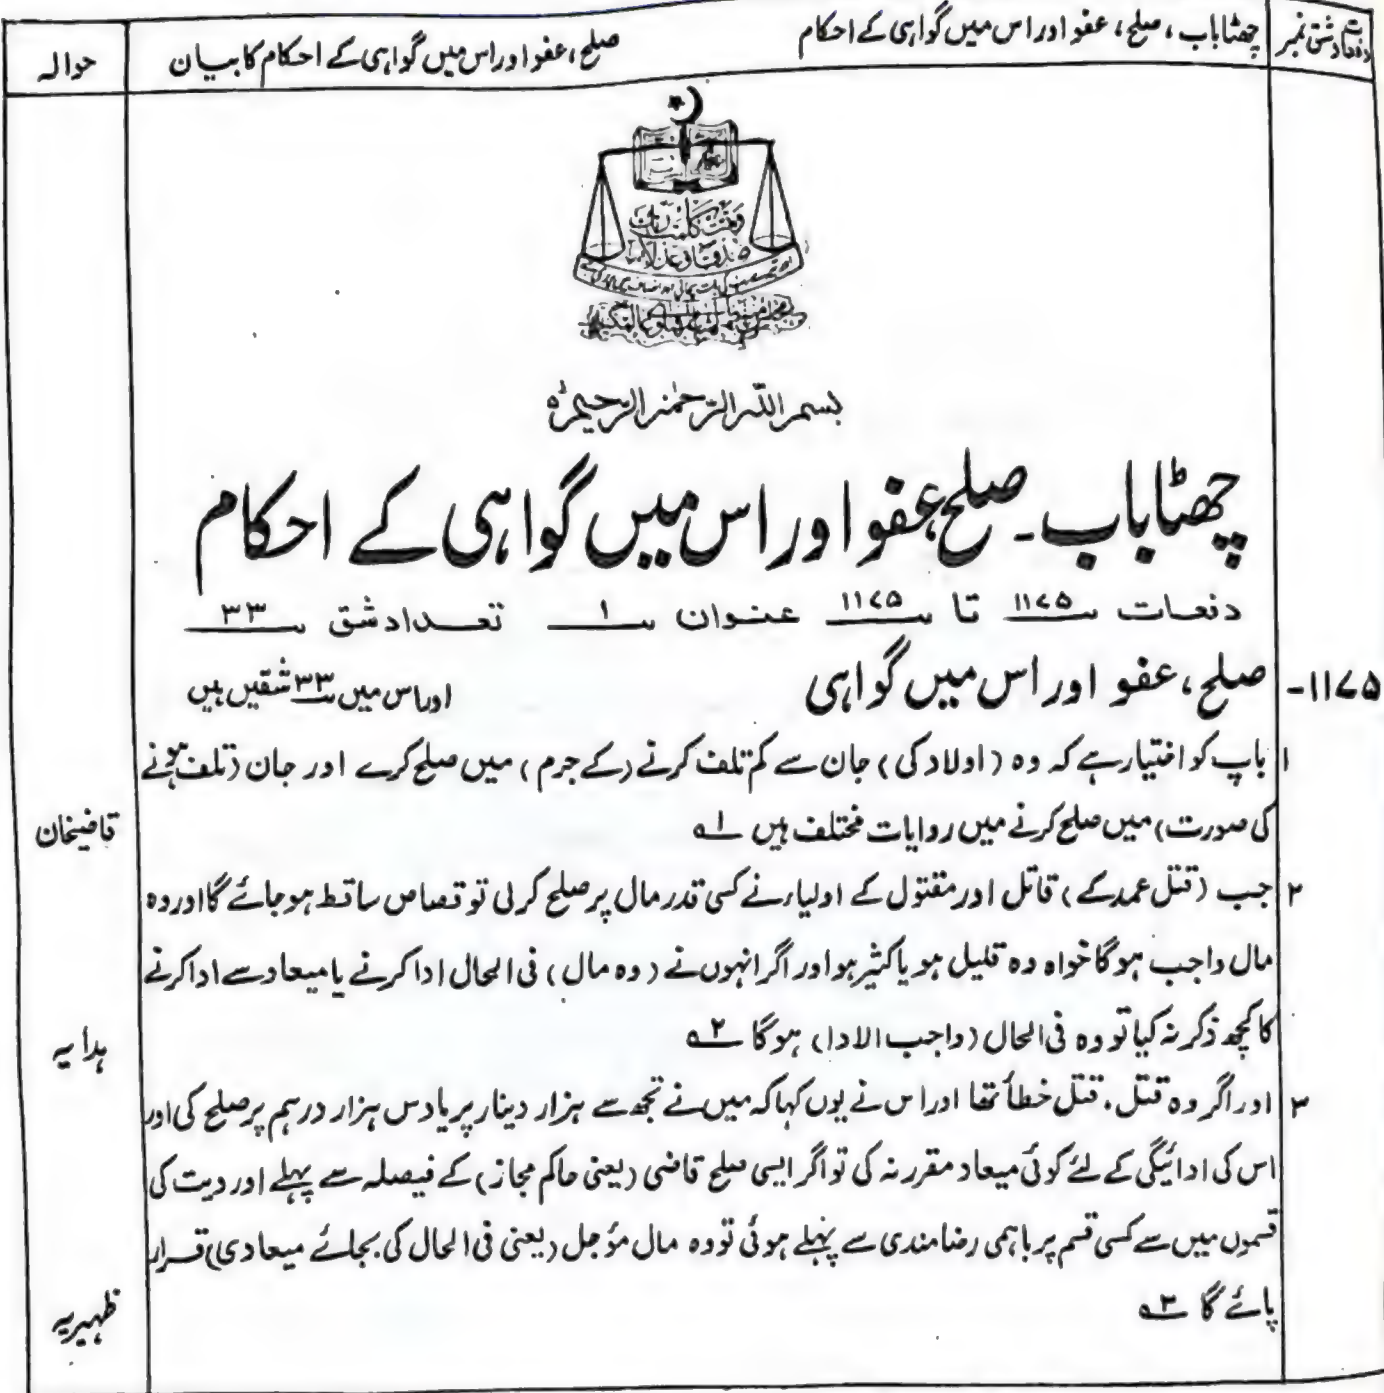 دفعات وشق نمبر
چھٹا باب ، صلح ، عفو اور اس میں گواہی کے احکام
صلح ، عفو اور اس میں گواہی کے احکام کا بیان
حوالہ
بسم اللہ الرحمٰن الرحیم
چھٹا باب ۔ صلح، عفو اور اس میں گواہی کے احکام
دفعات ۱۱۷۵ تا ۱۱۷۵ عنوان ۱ تعداد شق ۳۳
۱۱۷۵- صلح ، عفو اور اس میں گواہی اور اس میں ۳۳ شقیں ہیں
۱ باپ کو اختیار ہے کہ وہ (اولاد کی) جان سے کم تلف کرنے (کے جرم) میں صلح کرے اور جان (تلف ہونے
کی صورت) میں صلح کرنے میں روایات مختلف ہیں ۱ے
قاضیخان
۲ جب (قتل عمد کے) قاتل اور مقتول کے اولیاء نے کسی قدر مال پر صلح کر لی تو قصاص ساقط ہو جائے گا اور وہ
مال واجب ہوگا خواہ وہ قلیل ہو یا کثیر ہو اور اگر انہوں نے (وہ مال) فی الحال ادا کرنے یا میعاد سے ادا کرنے
کا کچھ ذکر نہ کیا تو وہ فی الحال (واجب الادا) ہوگا ۲ے
ہدایہ
۳ اور اگر وہ قتل ، قتل خطأ تھا اور اس نے یوں کہا کہ میں نے تجھ سے ہزار دینار پر یا دس ہزار درہم پر صلح کی اور
اس کی ادائیگی کے لئے کوئی میعاد مقرر نہ کی تو اگر ایسی صلح قاضی (یعنی حاکم مجاز) کے فیصلہ سے پہلے اور دیت کی
قسموں میں سے کسی قسم پر باہمی رضامندی سے پہلے ہوئی تو وہ مال مؤجل (یعنی فی الحال کی بجائے میعادی) قرار
پائے گا ۳ے
ظہیریہ